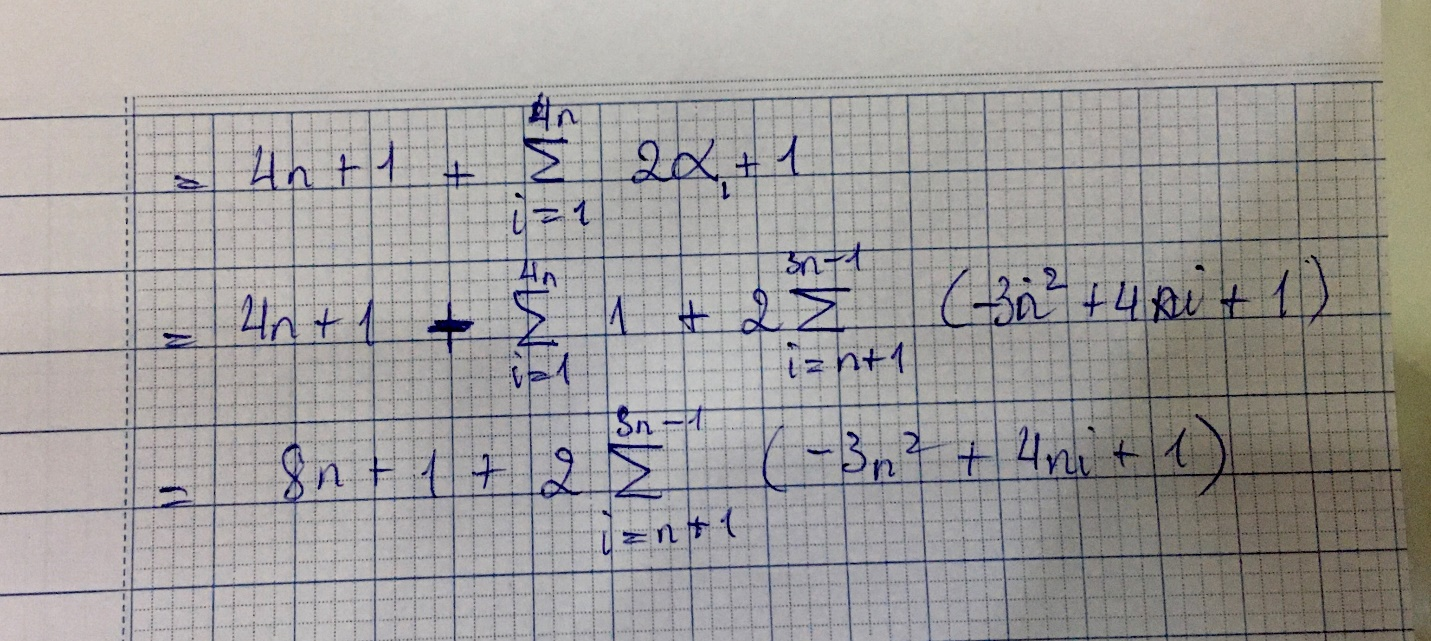 = 4n + 1 + \sum_{i=1}^{4n} 2α_i + 1
= 4n + 1 + \sum_{i=1}^{4n} 1 + 2 \sum_{i=n+1}^{3n-1} (-3n^2 + 4ni + 1)
= 8n + 1 + 2 \sum_{i=n+1}^{3n-1} (-3n^2 + 4ni + 1)